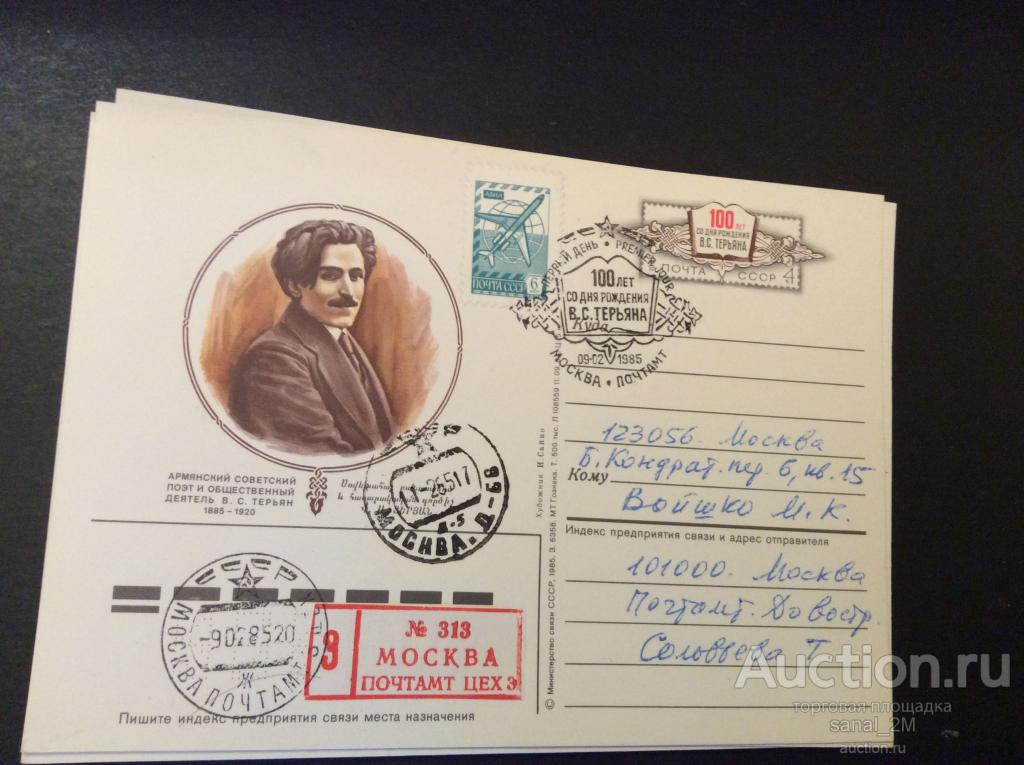 АВИА
ПОЧТА СССР 6
100 ЛЕТ
СО ДНЯ РОЖДЕНИЯ
В.С. ТЕРЬЯНА
ПОЧТА СССР 4
ПЕРВЫЙ ДЕНЬ • PREMIER JOUR
100 ЛЕТ
СО ДНЯ РОЖДЕНИЯ
В.С. ТЕРЬЯНА
09-02 1985
МОСКВА • ПОЧТАМТ
Куда
123056. Москва
Б. Кондрат. пер. 6, кв. 15
Кому
Войшко М. К.
Индекс предприятия связи и адрес отправителя
101000. Москва
Почтамт. До востр.
Соловьева Т.
АРМЯНСКИЙ СОВЕТСКИЙ
ПОЭТ И ОБЩЕСТВЕННЫЙ
ДЕЯТЕЛЬ В. С. ТЕРЬЯН
1885–1920
МОСКВА. Д-56
Д-5
СССР
МОСКВА ПОЧТАМТ
-9028520
Ж
З
№ 313
МОСКВА
ПОЧТАМТ ЦЕХ З
Пишите индекс предприятия связи места назначения
Художник И. Савин
© Министерство связи СССР, 1985. З. 6358. МТ Гознака. Т. 500 тыс. Л 108559
Auction.ru
торговая площадка
sanal_2M
auction.ru